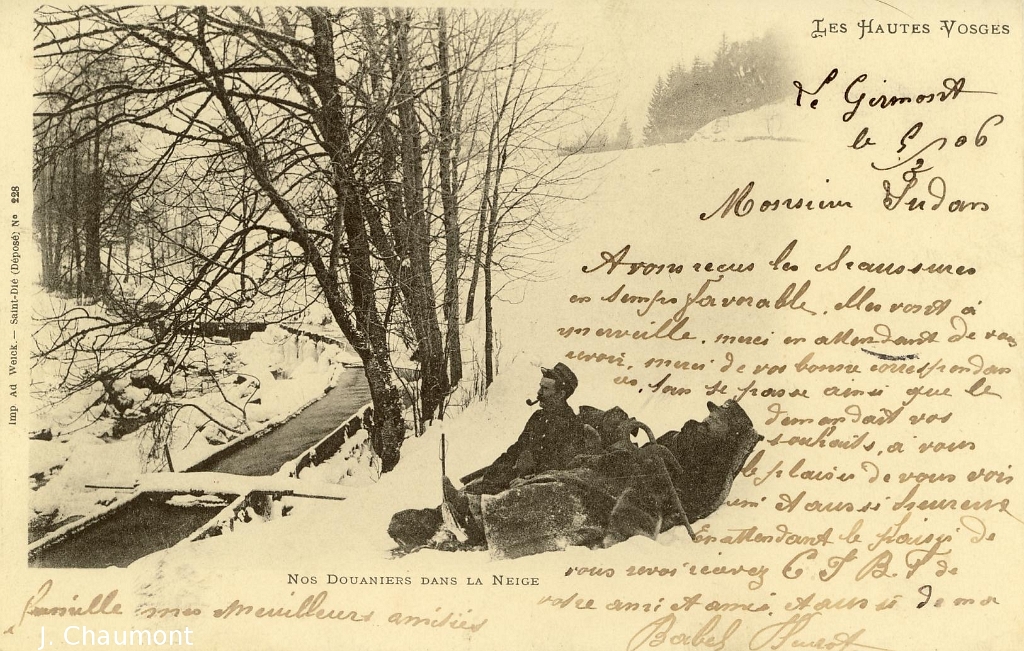 LES HAUTES VOSGES
Le Girmont
le 5/2 06
Monsieur
Avons reçus les chaussures
en temps favorable, elles vont à
merveille, merci en attendant de vous
revoir, merci de vos bonne correspondan
ces, l'an se passe ainsi que le
demandait vos
souhaits, à vous
le plaisir de vous voir
uni et aussi heureux
En attendant le plaisir de
vous revoir recevez C J B F de
votre ami et amie, et aussi de ma
famille mes meuilleurs amitiés
NOS DOUANIERS DANS LA NEIGE
Imp Ad Weick. — Saint-Dié (Déposé) No 228
J. Chaumont